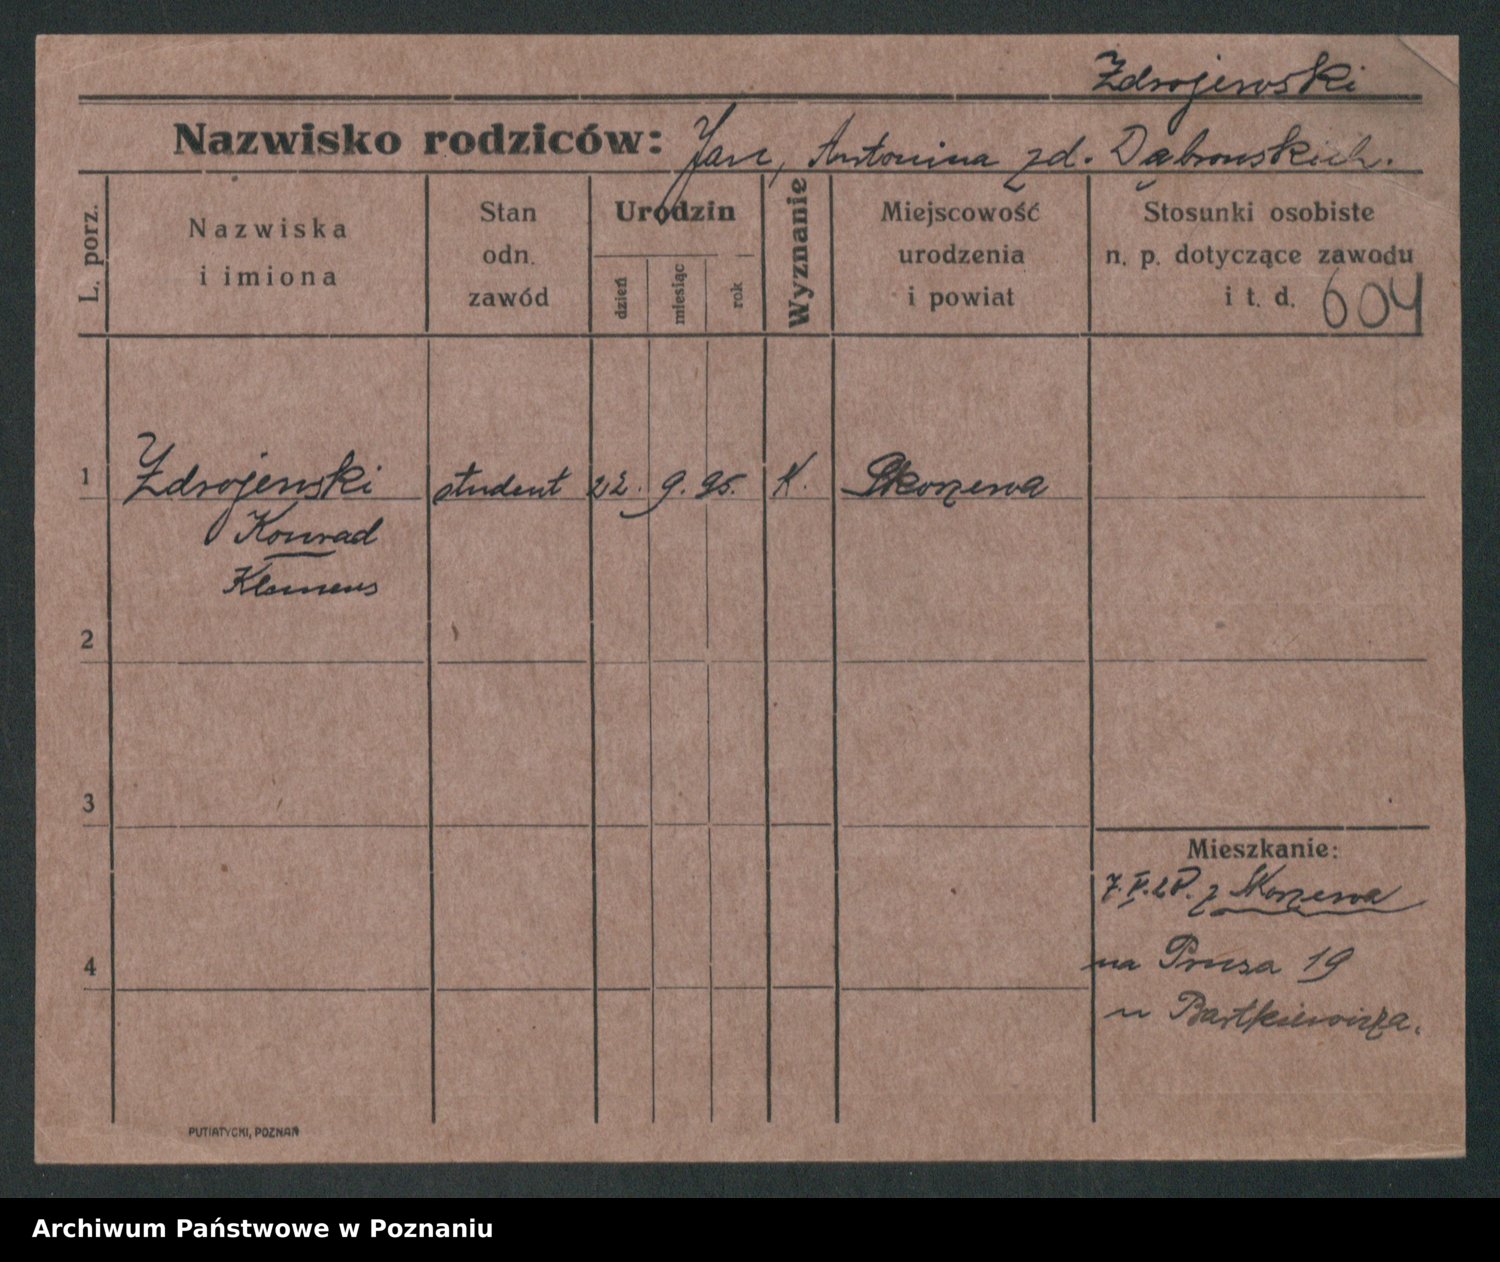 Zdrojewski
Nazwisko rodziców: Jan, Antonina zd. Dąbrowskich.
L. porz.
Nazwiska
i imiona
Stan
odn.
zawód
Urodzin
dzień
miesiąc
rok
Wyznanie
Miejscowość
urodzenia
i powiat
Stosunki osobiste
n. p. dotyczące zawodu
i t. d. 604
1 Zdrojewski student 22. 9. 95. K. Skorzewa
Konrad
Klemens
2
3
Mieszkanie:
z Skorzewa
4 na Prusa 19
u Bartkiewicza.
PUTIATYCKI, POZNAŃ
Archiwum Państwowe w Poznaniu